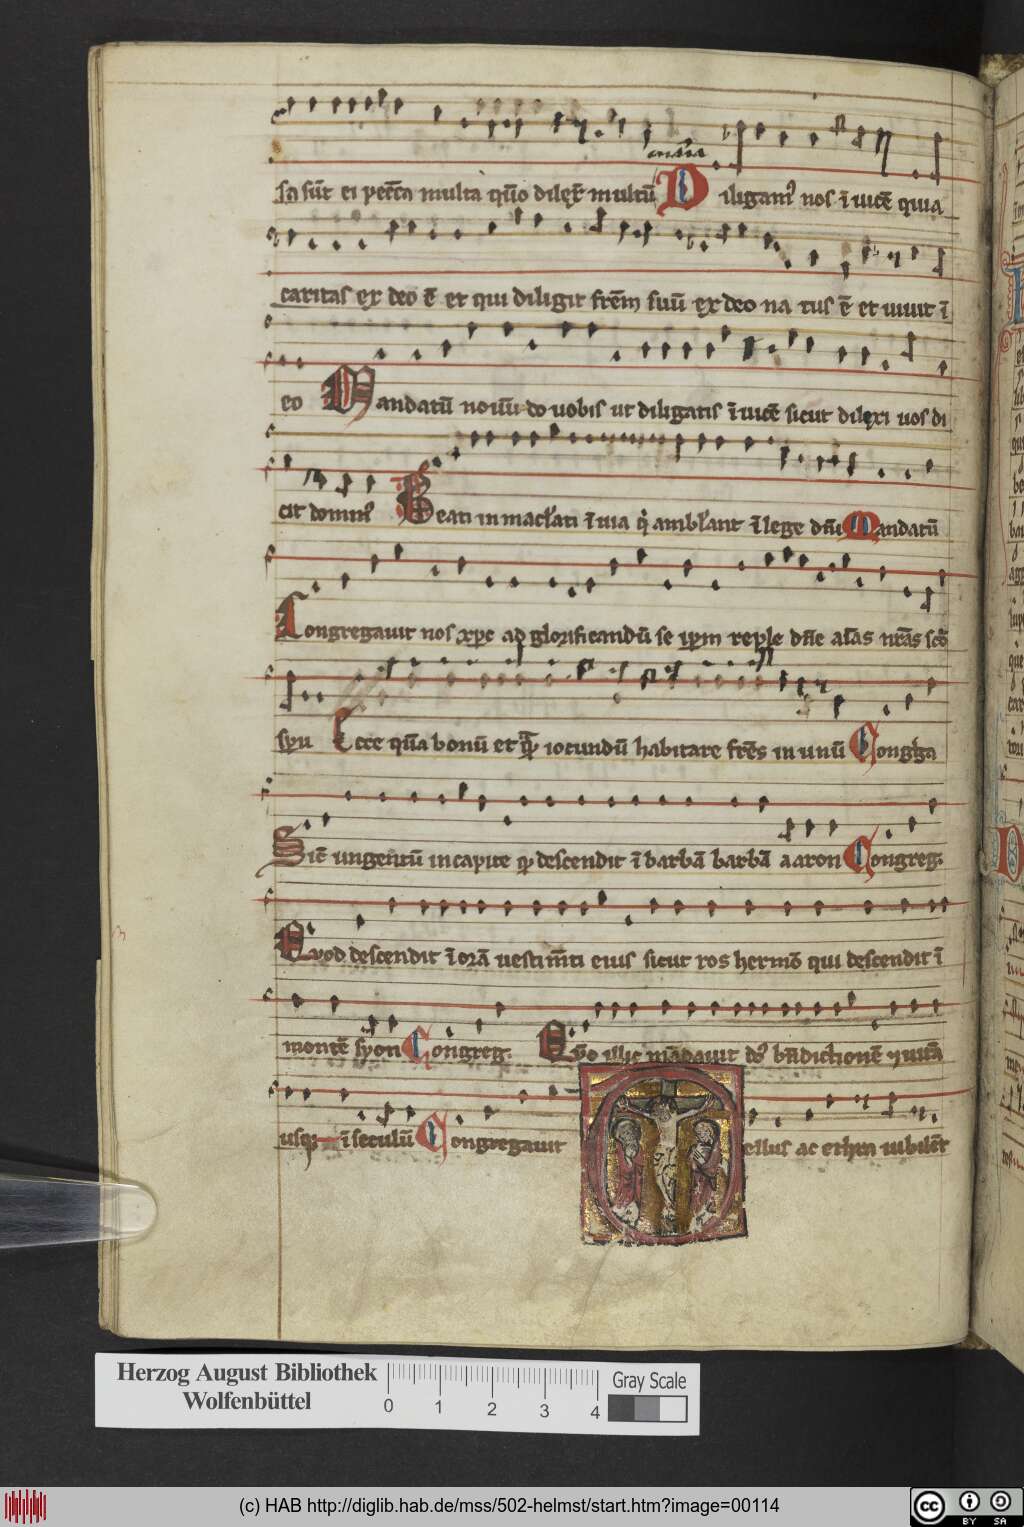 sa sūt ei pecc̄a multa qm̄o dilex̄ multū Diligam᷒ nos ī uicē quia
caritas ex deo ē et qui diligit frēm suū ex deo na tus ē et uiuit ī
eo Mandatū nouū do uobis ut diligatis ī uicē sicut dilexi uos di
cit domin᷒ Beati inmacl̄ati ī uia q̇ ambl̄ant ī lege dn̄i Mandatū
Congregauit nos xp̄c ad glorificandū se ip̄m reple dn̄e aīas nrās sc̄o
spu Ecce qm̄ bonū et qm̄ iocundū habitare frēs in unū Congrega
Sic̄ ungentū in capite qd descendit ī barbā barbā aaron Congreg.
Quod descendit ī orā uestim̄ti eius sicut ros hermō qui descendit ī
montē syon Congreg. Qm̄o illic mādauit do᷒ bn̄dictionē ⁊ uitā
usq; ī seculū Congregauit ellus ac ethra iubilēt
Herzog August Bibliothek
Wolfenbüttel
0 1 2 3 4
Gray Scale
(c) HAB http://diglib.hab.de/mss/502-helmst/start.htm?image=00114
cc BY SA